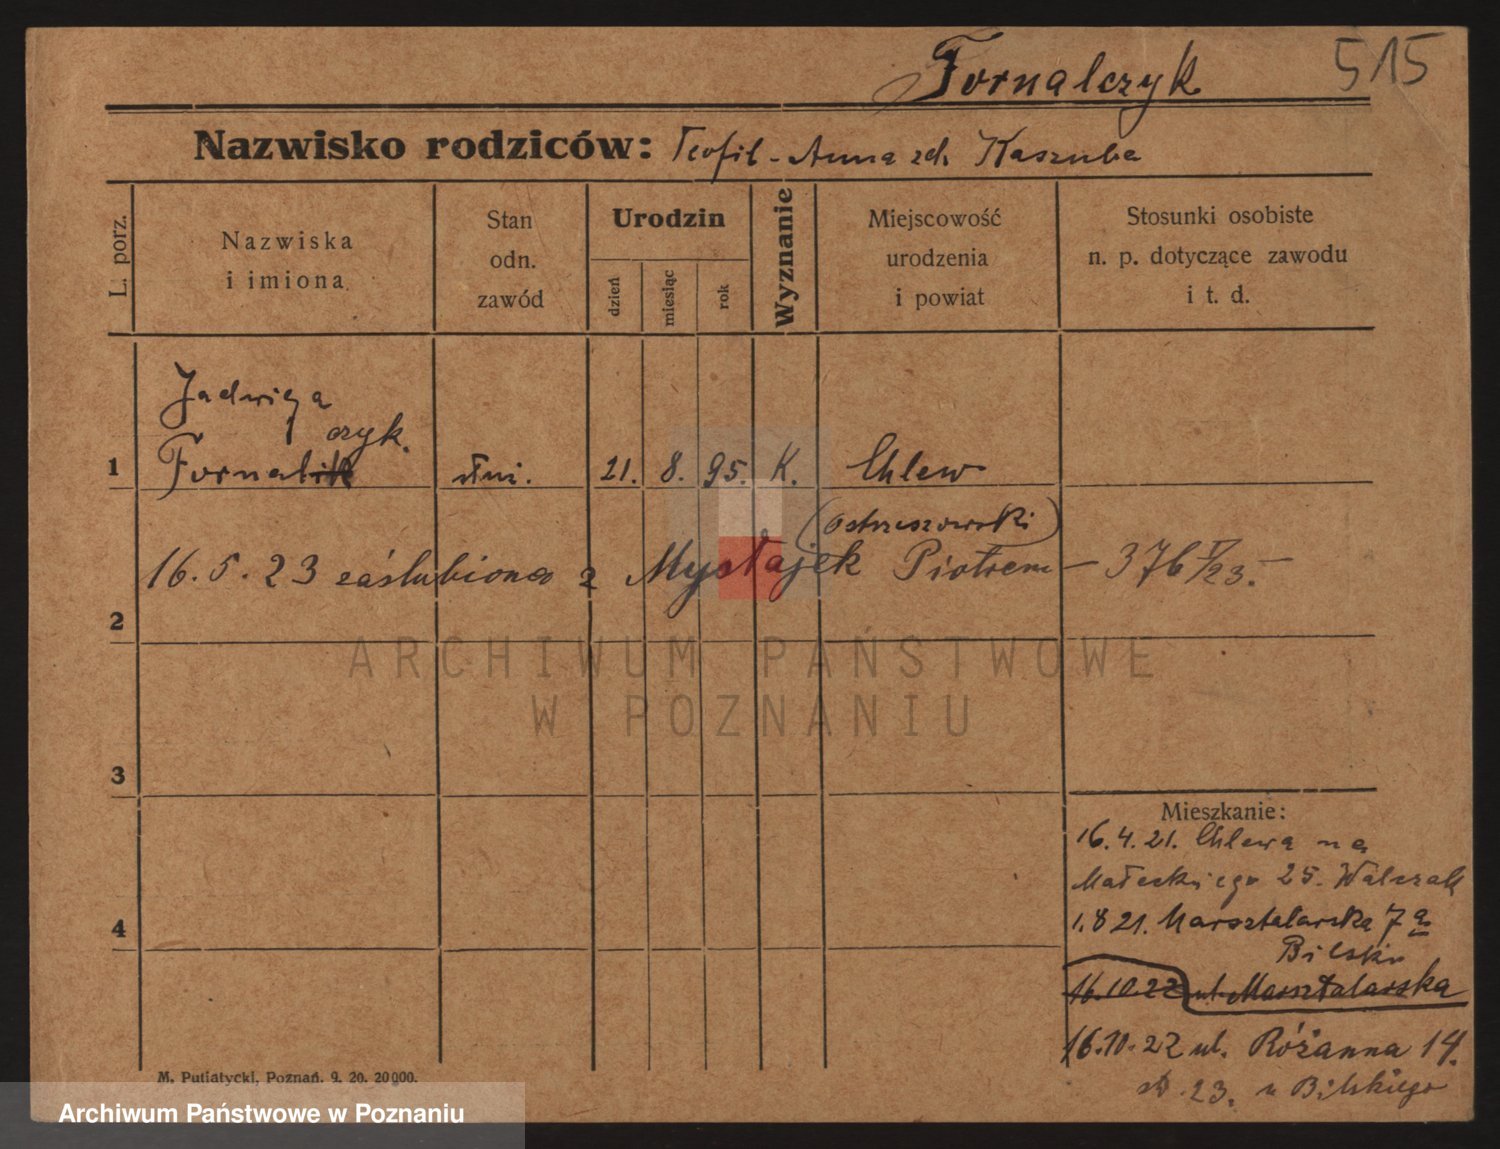 Fornalczyk 515
Nazwisko rodziców: Teofil - Anna zd. Kaszuba
L. porz.
Nazwiska
i imiona
Stan
odn.
zawód
Urodzin
dzień
miesiąc
rok
Wyznanie
Miejscowość
urodzenia
i powiat
Stosunki osobiste
n. p. dotyczące zawodu
i t. d.
Jadwiga
czyk.
1 Fornalik służ. 21. 8. 95. K. Chlew
(Ostrzeszowski)
16. 5. 23 zaślubiona z Mystajek Piotrem - 376 V/23. -
2
3
Mieszkanie:
16. 4. 21. Chlewa na
Małeckiego 25. Walczak
4
1. 8 21. Marsztalarska 7a
Bilski
16.10.22 ul. Marsztalarska
16.10.22 ul. Różanna 14.
23. u Bilskiego
M. Putiatycki, Poznań. 9. 20. 20000.
ARCHIWUM PAŃSTWOWE
W POZNANIU
Archiwum Państwowe w Poznaniu